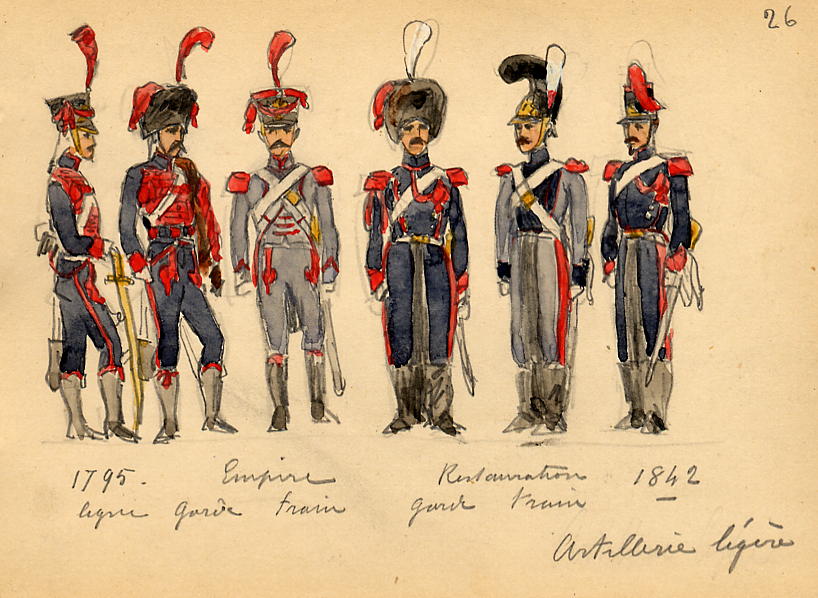 26
1795. Empire Restauration 1842
ligne Garde train garde train
Artillerie légère